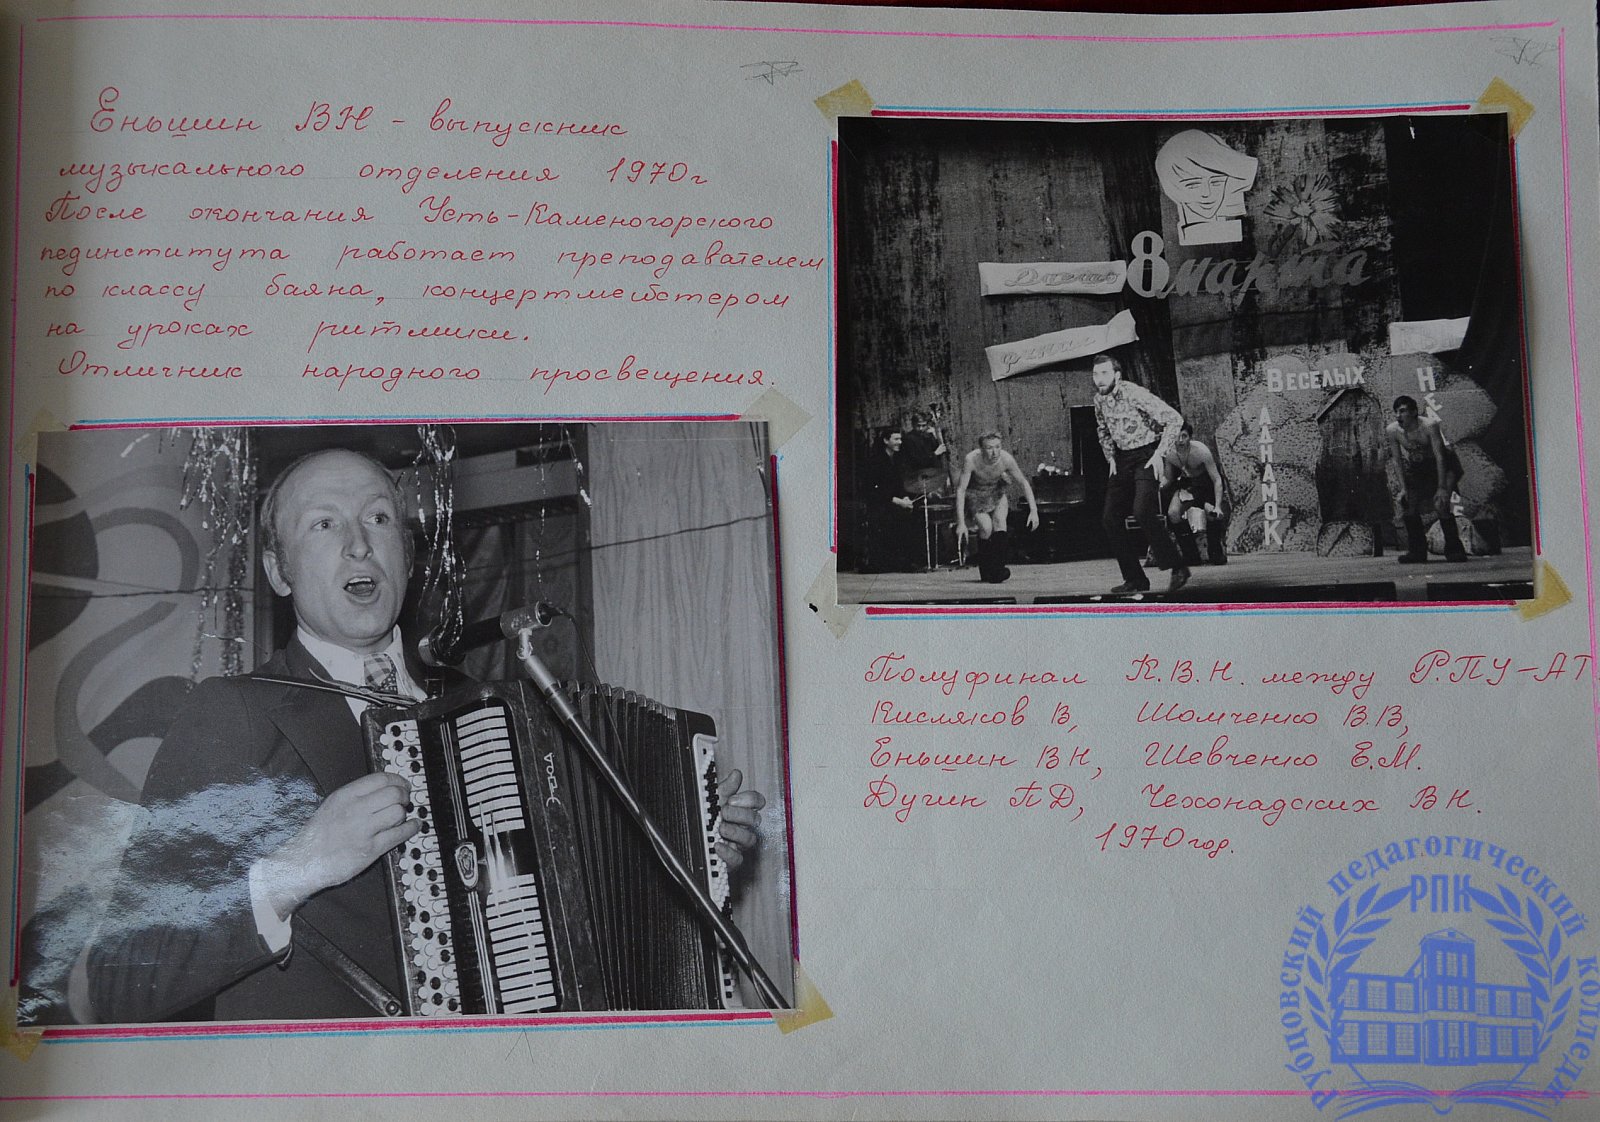 Еньшин ВН - выпускник
музыкального отделения 1970г
После окончания Усть-Каменогорского
пединститута работает преподавателем
по классу баяна, концертмейстером
на уроках ритмики.
Отличник народного просвещения.
8 марта
финал
Веселых
АДНАМОК
Этюд
Полуфинал К.В.Н. между РПУ-АТ
Кисляков В, Шомченко В.В,
Еньшин ВН, Шевченко Е.М.
Дугин ПД, Чехонадских ВН.
1970 год.
Рубцовский педагогический колледж
РПК